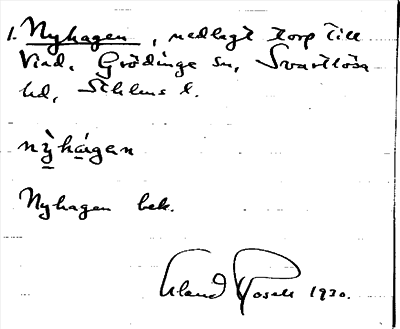 1. Nyhagen, nedlagt torp till
Viad, Grödinge sn, Svartlösa
hd, Sthlms l.
nỳhágen
Nyhagen bek.
Erland Rosell 1930.